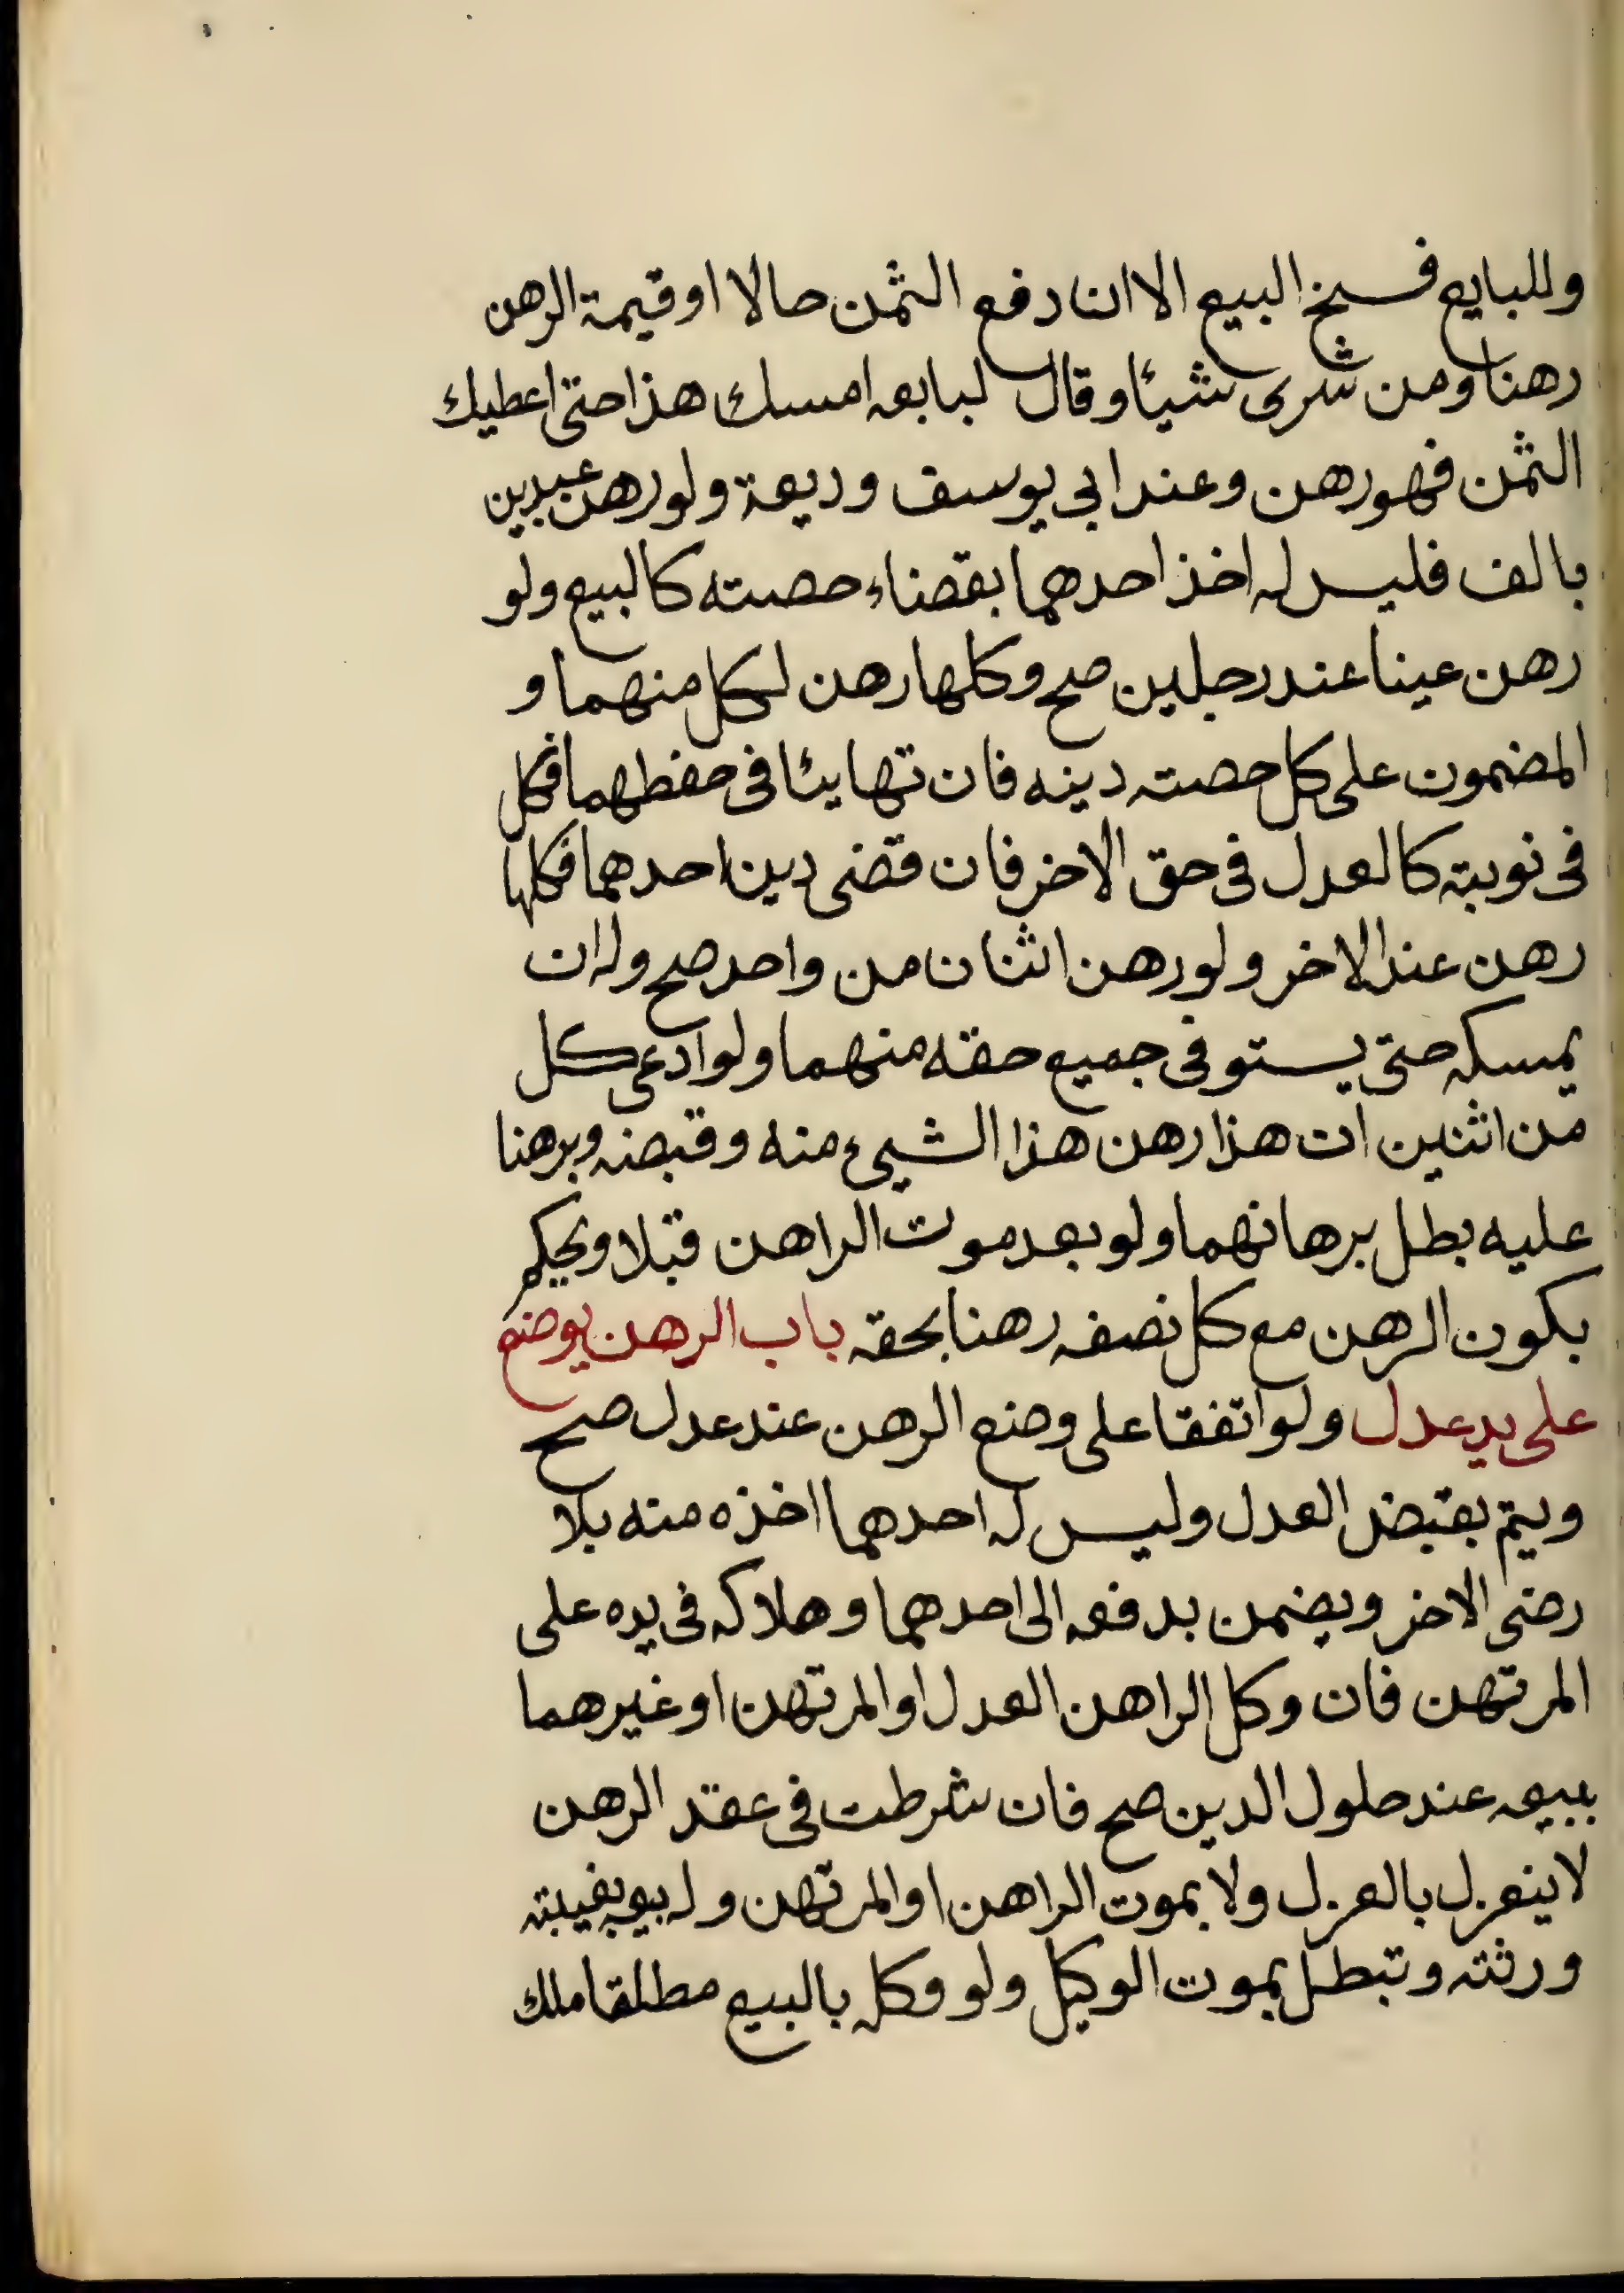 وللبايع فسخ البيع الا ان دفع الثمن حالا او قيمة الرهن
رهنا ومن شرى شيئا وقال لبايعه امسك هذا حتى اعطيك
الثمن فهو رهن وعند ابي يوسف وديعة ولو رهن عبدين
بالف فليس له اخذ احدهما بقضاء حصته كالبيع ولو
رهن عينا عند رجلين صح وكلها رهن لكل منهما و
المضمون على كل حصته دينه فان تهايئا فى حفظهما فكل
فى نوبته كالعدل فى حق الاخر فان قضى دين احدهما فكلها
رهن عند الاخر ولو رهن اثنان من واحد صح وله ان
يمسكه حتى يستوفى جميع حقه منهما ولو ادعى كل
من اثنين ان هذا رهن هذا الشيىء منه وقبضه وبرهنا
عليه بطل برهانهما ولو بعد موت الراهن قبلا ويحكم
بكون الرهن مع كل نصفه رهنا بحقه باب الرهن يوضع
على يد عدل ولو اتفقا على وضع الرهن عند عدل صح
ويتم بقبض العدل وليس لاحدهما اخذه منه بلا
رضى الاخر ويضمن بدفعه الى احدهما وهلاكه فى يده على
المرتهن فان وكل الراهن العدل او المرتهن او غيرهما
ببيعه عند حلول الدين صح فان شرطت فى عقد الرهن
لا ينعزل بالعزل ولا بموت الراهن او المرتهن وله بيعه بغيبته
ورثته وتبطل بموت الوكيل ولو وكله بالبيع مطلقا ملك